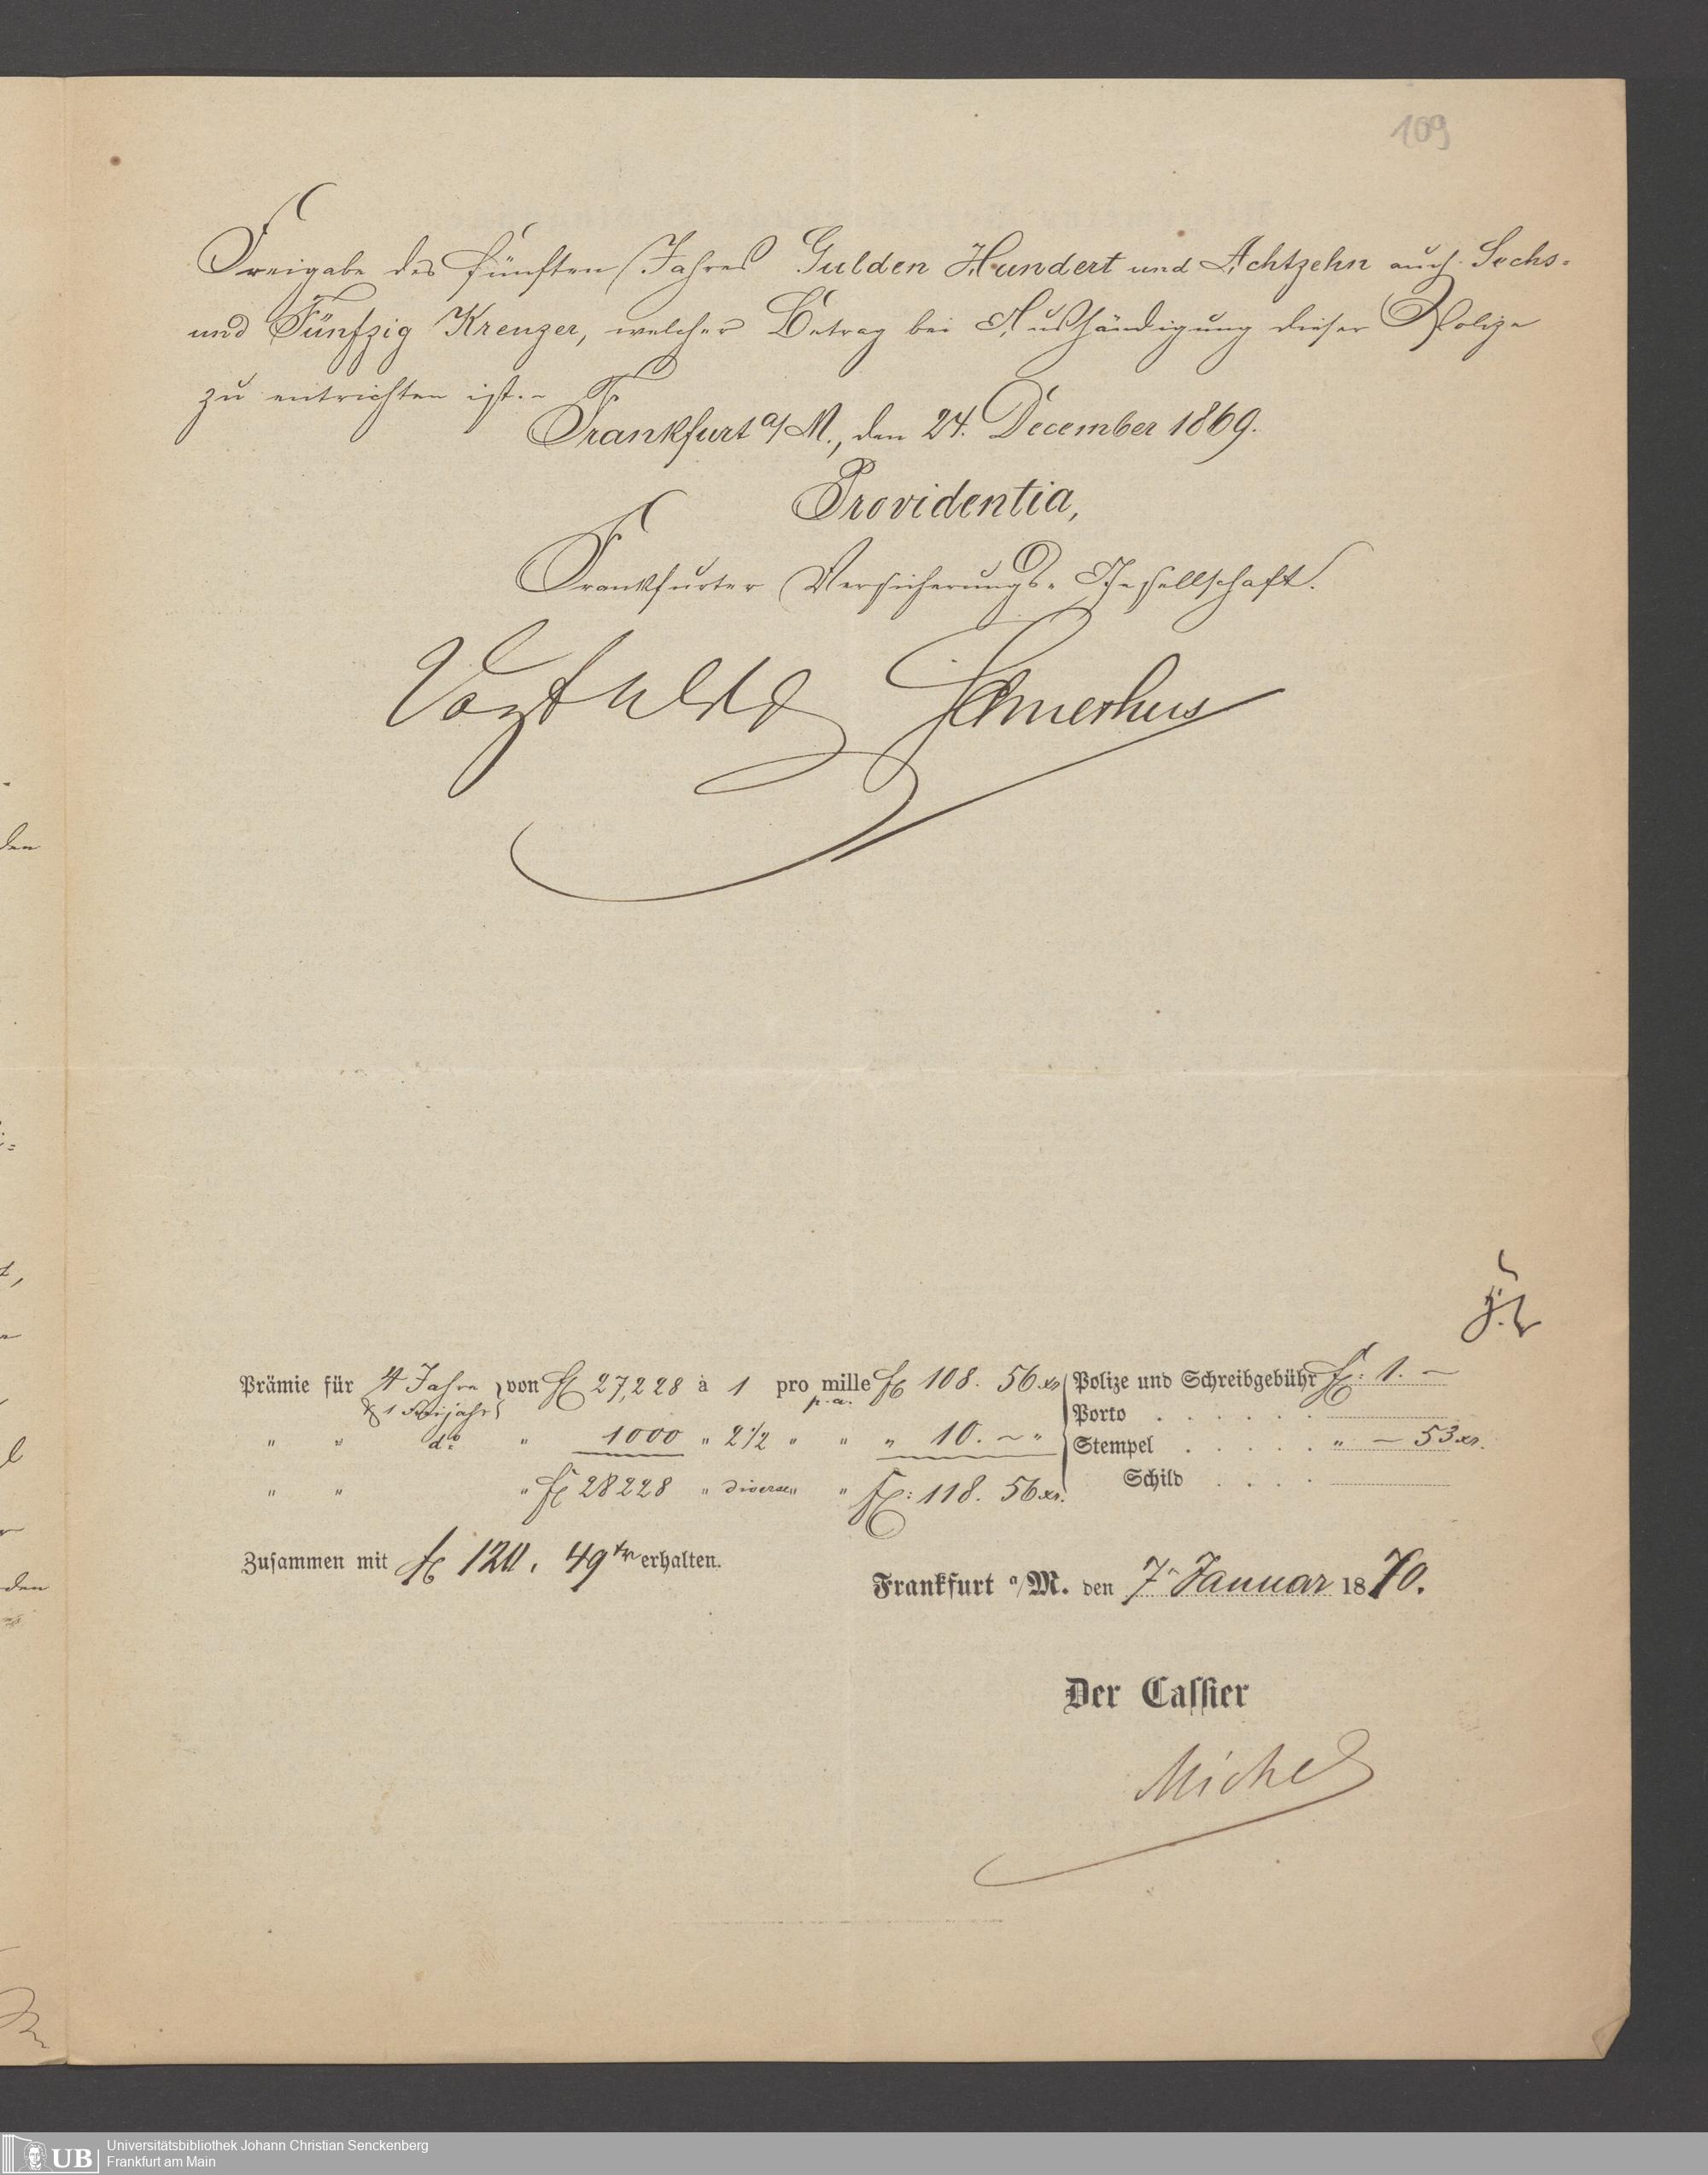 109
Freigabe des fünften Jahres Gulden Hundert und Achtzehn auch Sechs-
und Fünfzig Kreuzer, welcher Betrag bei Aushändigung dieser Polize
zu entrichten ist.
Frankfurt a/M., den 24. December 1869.
Providentia,
Frankfurter Versicherungs-Gesellschaft.
Prämie für 4 Jahre von fl 27,228 à 1 pro mille fl 108. 56 xr Polize und Schreibgebühr fl: 1. –
& 1 Freijahr p. a.
Porto . . . . . .
" " do. " 1000 " 2 1/2 " " " 10. – " Stempel . . . . . " – 53 xr.
" " " fl 28228 " diverse " " fl: 118. 56 xr. Schild . . . .
Zusammen mit fl 120. 49 xr erhalten.
Frankfurt a/M. den 7 Januar 1870.
Der Cassier
Michel
den
den
UB Universitätsbibliothek Johann Christian Senckenberg
Frankfurt am Main